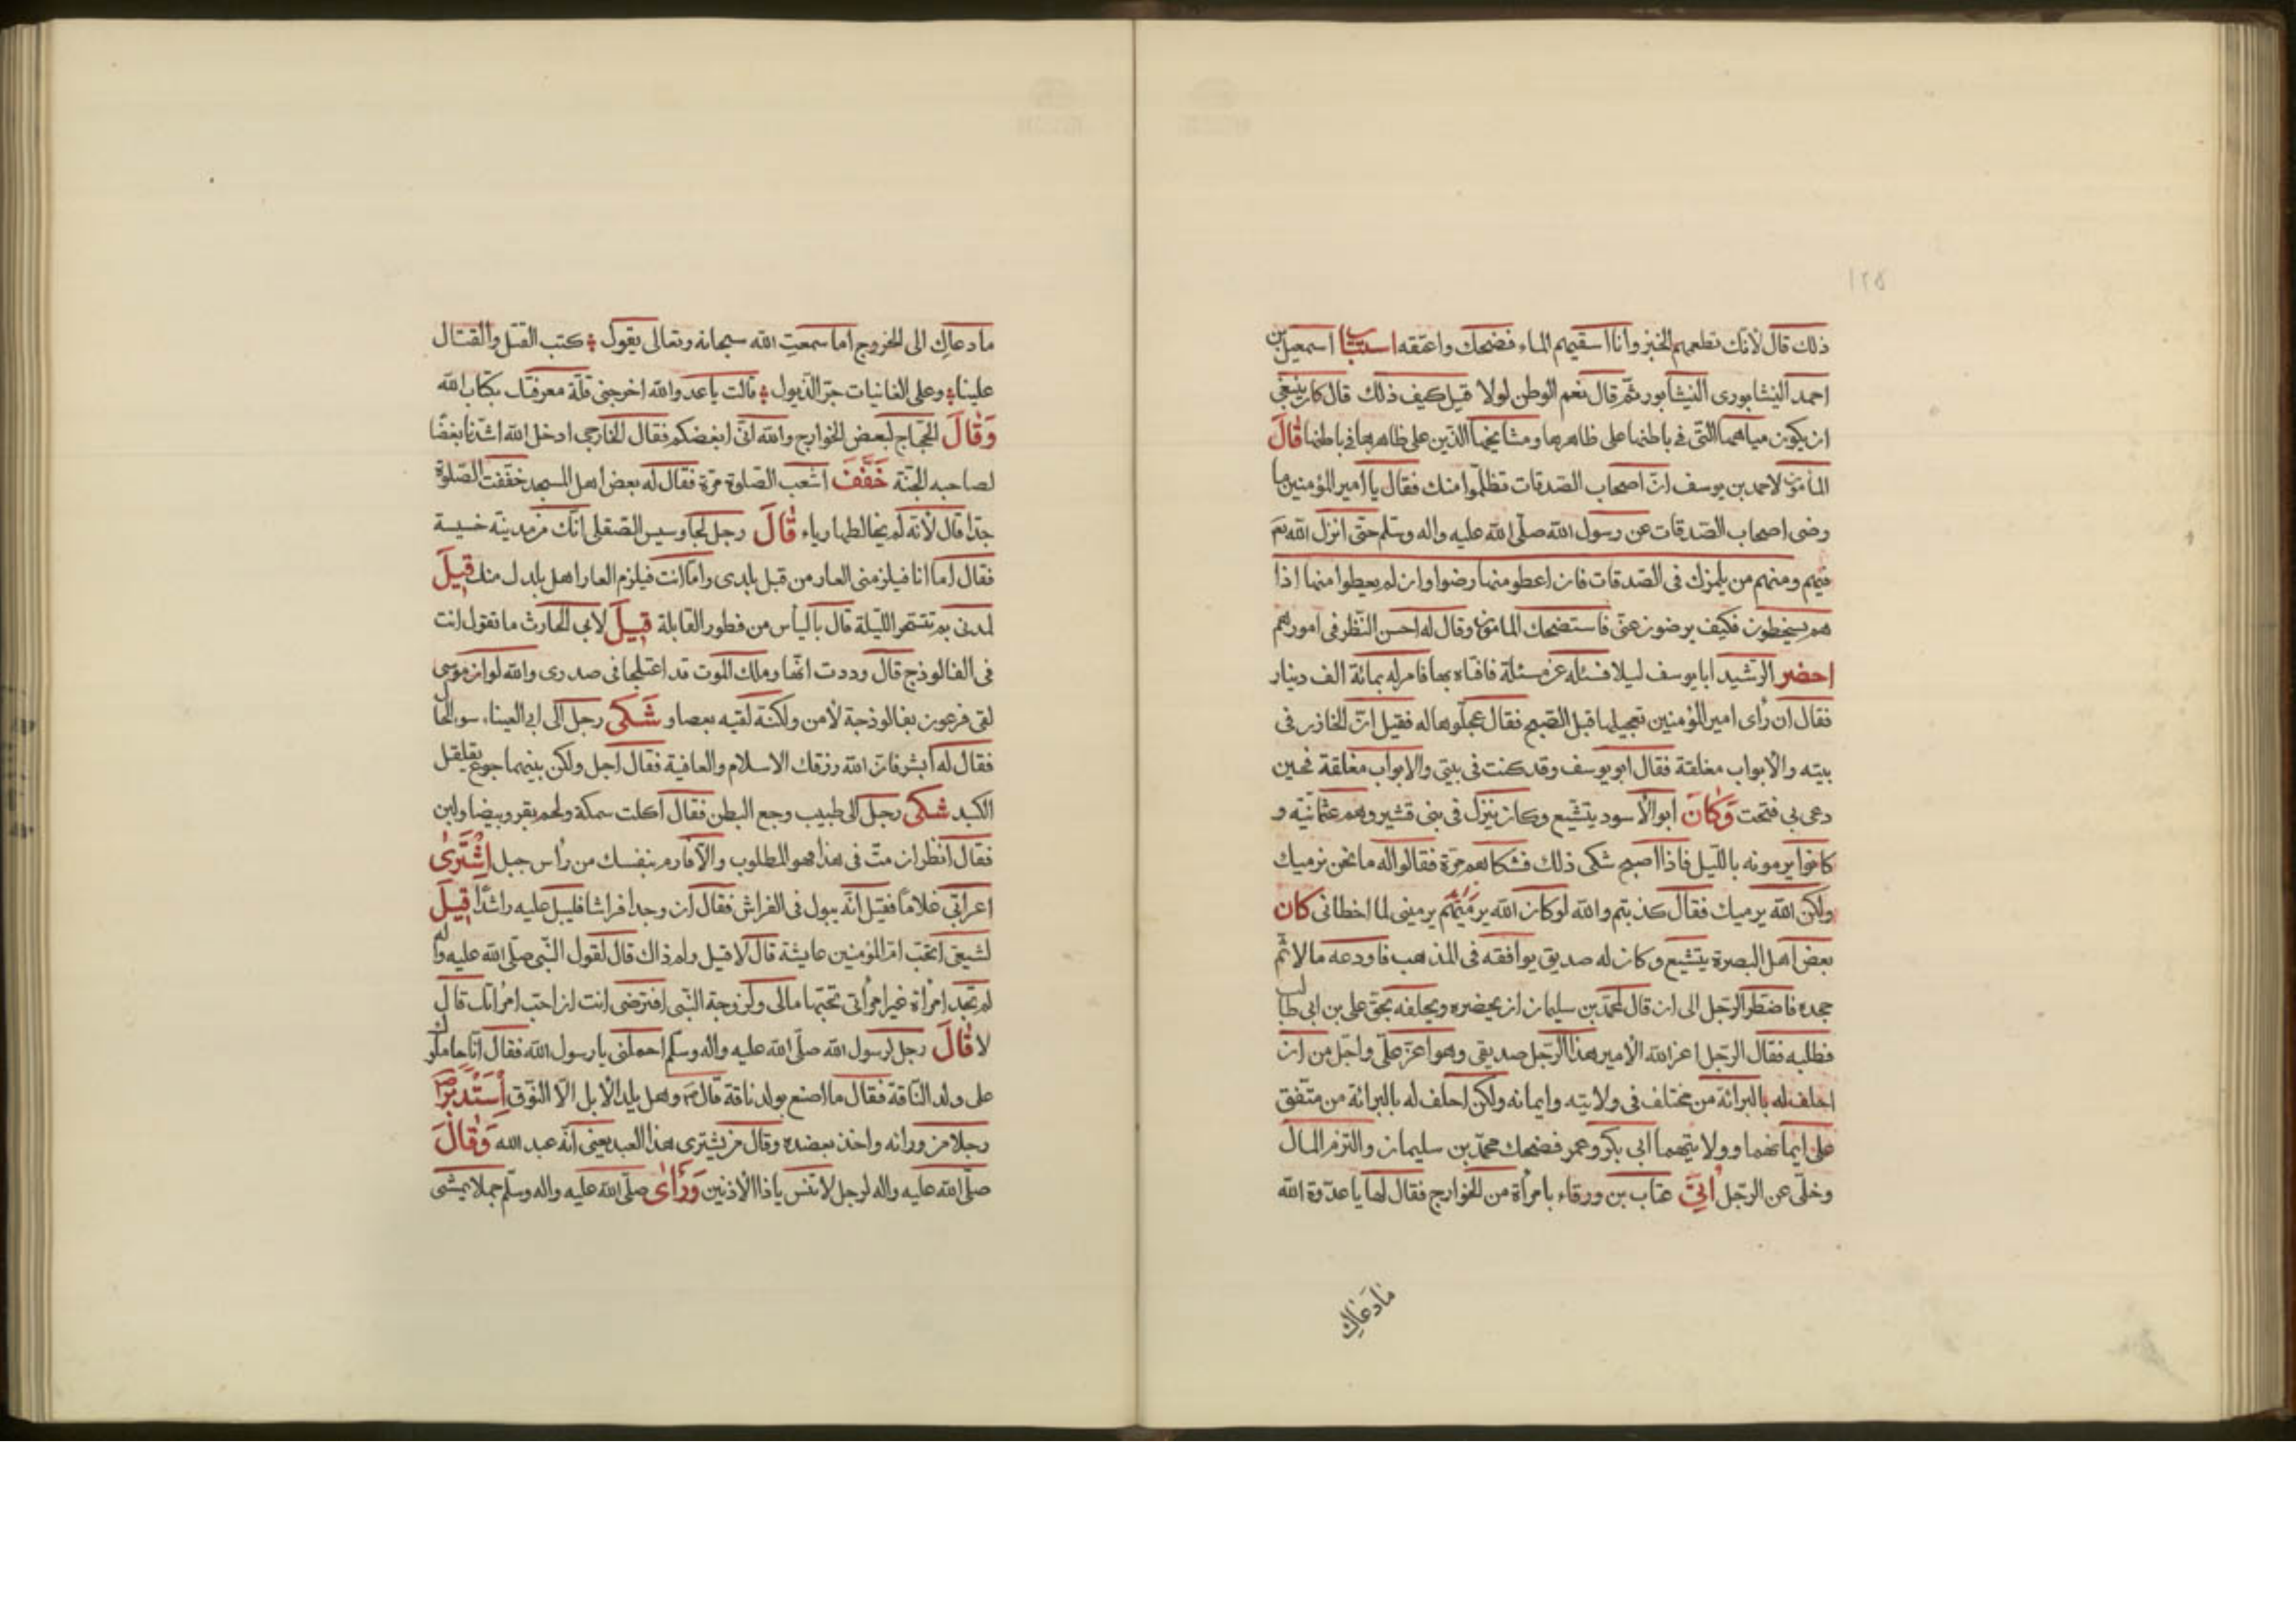 ١٢٥
ذلك قال لأنك تطعمهم الخبز وأنا اسقيهم الماء فضحك واعتقه اسمعيل بن
احمد النيشابورى النيشابور ثم قال نعم الوطن لولا قيل كيف ذلك قال كان ينبغى
ان يكون مياهها التى فى باطنها على ظاهرها ومشايخها الذين على ظاهرها فى باطنها قال
المأمون لاحمد بن يوسف ان اصحاب الصدقات تظلموا منك فقال يا امير المؤمنين ما
رضى اصحاب الصدقات عن رسول الله صلى الله عليه واله وسلم حتى انزل الله
فيهم ومنهم من يلمزك فى الصدقات فان اعطو منها رضوا وان لم يعطوا منها اذا
هم يسخطون فكيف يرضون عنى فاستضحك المامون وقال له احسن النظر فى امورهم
احضر الرشيد ابا يوسف ليلا فسئله عن مسئلة فافتاه بها فامر له بمائة الف دينار
فقال ان رأى امير المؤمنين تعجيلها قبل الصبح فقال عجلوها له فقيل ان الخازن فى
بيته والأبواب مغلقة فقال ابو يوسف وقد كنت فى بيتى والابواب مغلقة فحين
دعى بى فتحت وكان ابو الأسود يتشيع وكان ينزل فى بنى قشير وهم عثمانية و
كانوا يرمونه بالليل فاذا اصبح شكى ذلك فشكاهم مرة فقالوا له ما نحن نرميك
ولكن الله يرميك فقال كذبتم والله لو كان الله يرمينى لما اخطانى كان
بعض اهل البصرة يتشيع وكان له صديق يوافقه فى المذهب فاودعه مالا ثم
جحده فاضطر الرجل الى ان قال لمحمد بن سليمان ان يحضره ويحلفه بحق على بن ابى طالب
فطلبه فقال الرجل اعز الله الأمير هذا الرجل صديقى وهو اعز على واجل من ان
احلف له بالبرائة من مختلف فى ولايته وايمانه ولكن احلف له بالبرائة من متفق
على ايمانهما وولايتهما ابى بكر وعمر فضحك محمد بن سليمان والتزم المال
وخلى عن الرجل أتى عتاب بن ورقاء بامرأة من الخوارج فقال لها يا عدوة الله
مادعاك
مادعاك الى الخروج اما سمعت الله سبحانه وتعالى يقول كتب القتل والقتال
علينا وعلى الغانيات جر الذيول قالت يا عدو الله اخرجنى قلة معرفتك بكتاب الله
وقال الحجاج لبعض الخوارج والله انى ابغضكم فقال الخارجى ادخل الله اشدنا بغضا
لصاحبه الجنة خفف اشعب الصلوة مرة فقال له بعض اهل المسجد خففت الصلوة
جدا قال لأنه لم يخالطها رياء قال رجل لجاوسيس الصقلى انك من مدينة خسيسة
فقال اما انا فيلزمنى العار من قبل بلدى واما انت فيلزم العار اهل بلدك منك قيل
لمدنى بم تتسحر الليلة قال باليأس من فطور القابلة قيل لابى الحارث ما تقول انت
فى الفالوذج قال وددت انها وملك الموت قد اعتلجا فى صدرى والله لو ان موسى
لقى فرعون بفالوذجة لأمن ولكنه لقيه بعصا و شكى رجل الى ابى العيناء سوء الحال
فقال له ابشر فان الله رزقك الاسلام والعافية فقال اجل ولكن بينهما جوع يقلقل
الكبد شكى رجل الى طبيب وجع البطن فقال اكلت سمكة ولحم بقر وبيضا ولبن
فقال انظر ان مت فى هذا فهو المطلوب والا فارم بنفسك من رأس جبل اشترى
اعرابى غلاما فقيل انه يبول فى الفراش فقال ان وجد فراشا فليبل عليه راشدا قيل
لشيعى اتحب ام المؤمنين عايشة قال لا قيل ولم ذاك قال لقول النبى صلى الله عليه واله
لم تجد امرأة غير امرأتى تحبها مالى ولزوجة النبى افترضى انت ان احب امرأتك قال
لا قال رجل لرسول الله صلى الله عليه واله وسلم احملنى يا رسول الله فقال انا حاملوك
على ولد الناقة فقال ما اصنع بولد ناقة قال وهل يلد الأبل الا النوق استدبر
رجلا من ورائه واخذ بعضده وقال من يشترى هذا العبد يعنى انه عبد الله وقال
صلى الله عليه واله لرجل لا تنس يا ذا الأذنين ورأى صلى الله عليه واله وسلم جملا يمشى